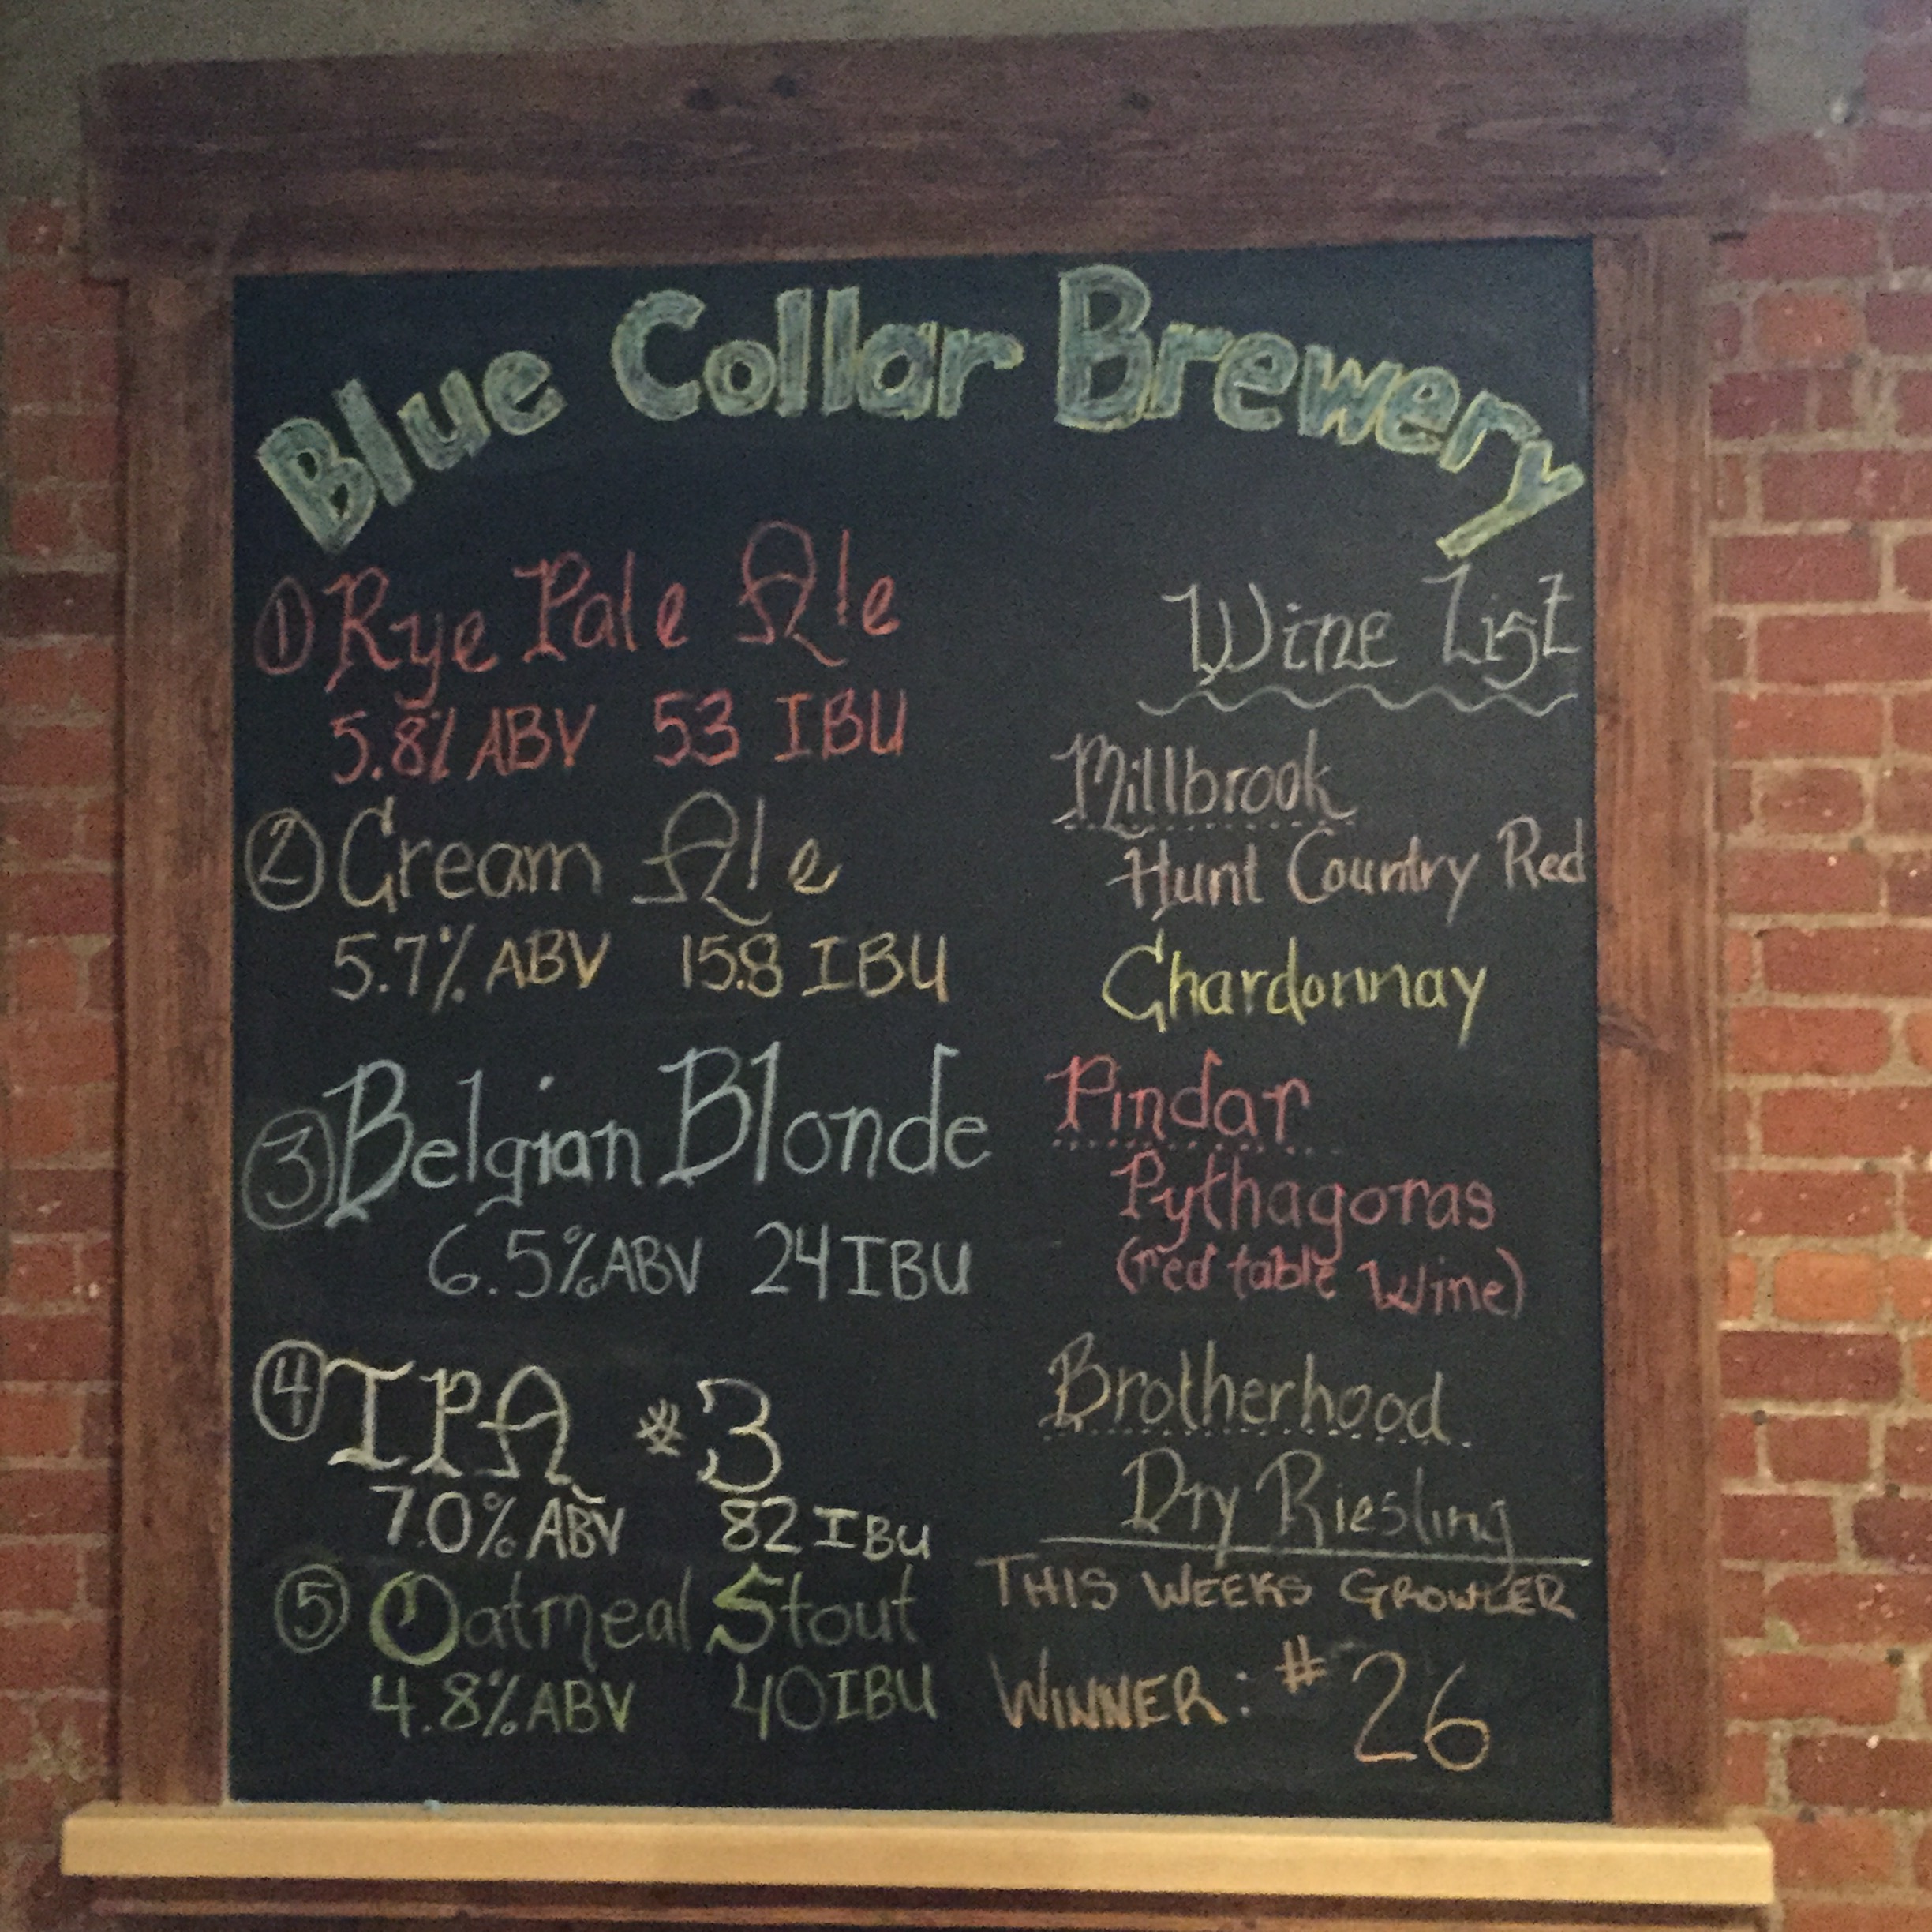 Blue Collar Brewery
① Rye Pale Ale
5.8% ABV 53 IBU
② Cream Ale
5.7% ABV 15.8 IBU
③ Belgian Blonde
6.5% ABV 24 IBU
④ IPA #3
7.0% ABV 82 IBU
⑤ Oatmeal Stout
4.8% ABV 40 IBU
Wine List
Millbrook
Hunt Country Red
Chardonnay
Pindar
Pythagoras
(red table Wine)
Brotherhood
Dry Riesling
THIS WEEKS GROWLER
WINNER: #26